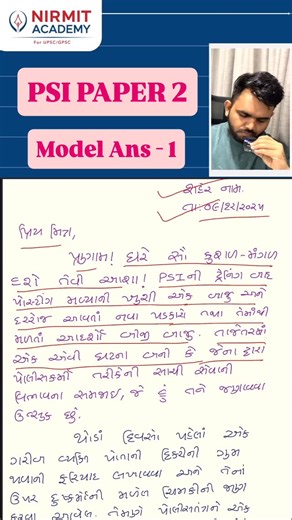 NIRMIT
ACADEMY
For UPSC/GPSC
PSI PAPER 2
Model Ans - 1
શહેર નામ.
તા:૦૬/૧૨/૨૦૨૫
પ્રિય મિત્ર,
પ્રણામ! ઘરે સૌ કુશળ-મંગળ
હશે તેવી આશા! PSIની ટ્રેનિંગ બાદ
પોસ્ટીંગ મળ્યાની ખુશી એક બાજુ અને
દરરોજ આવતાં નવા પડકારો તથા તેમાંથી
મળતાં આદર્શો બીજી બાજુ. તાજેતરમાં
એક એવી ઘટના બની કે જેના દ્વારા
પોલીસકર્મી તરીકેની સાચી સેવાની
ભાવના સમજાઇ, જે હું તને જણાવવા
ઉત્સુક છું.
થોડાં દિવસો પહેલાં એક
ગરીબ વ્યક્તિ પોતાની દિકરીની ગુમ
થવાની ફરિયાદ લખાવવા અને તેનાં
ઉપર દુષ્કર્મની મળેલ ધમકીની જાણ
કરવા આવેલ. તેમણે પોલીસતંત્રને એક